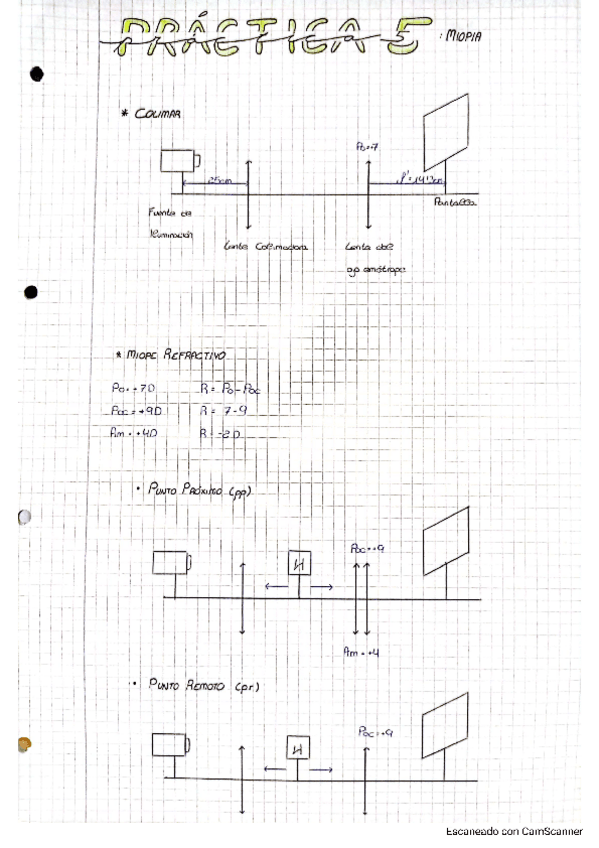 PRÁCTICA 5 : MIOPIA
* COLIMAR
Po=+7
25cm
Pantalla
Fuente de
iluminación
Lente Colimadora
Lente del
ojo amétrope
* MIOPE REFRACTIVO
Po = +7D R = Po - Poc
Poc = +9D R = 7-9
Am = +4D R = -2D
• PUNTO PRÓXIMO (pp)
Poc=+9
H
Am = +4
• PUNTO REMOTO (pr)
Poc=+9
H
Escaneado con CamScanner